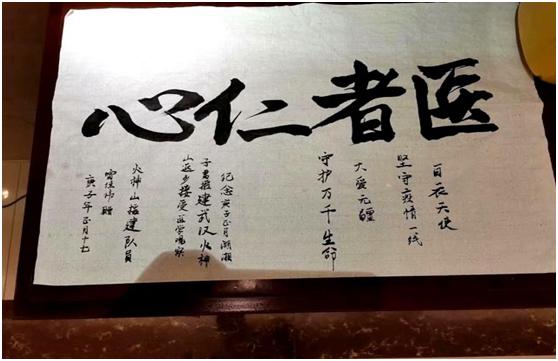 医者仁心
白衣天使
坚守疫情一线
大爱无疆
守护万千生命
纪念庚子正月湖湘
子弟援建武汉火神
山返乡接受医学观察
火神山援建队员
赠
庚子年正月十七